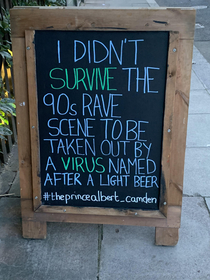 I DIDN'T
SURVIVE THE
90s RAVE
SCENE TO BE
TAKEN OUT BY
A VIRUS NAMED
AFTER A LIGHT BEER
#theprincealbert_camden